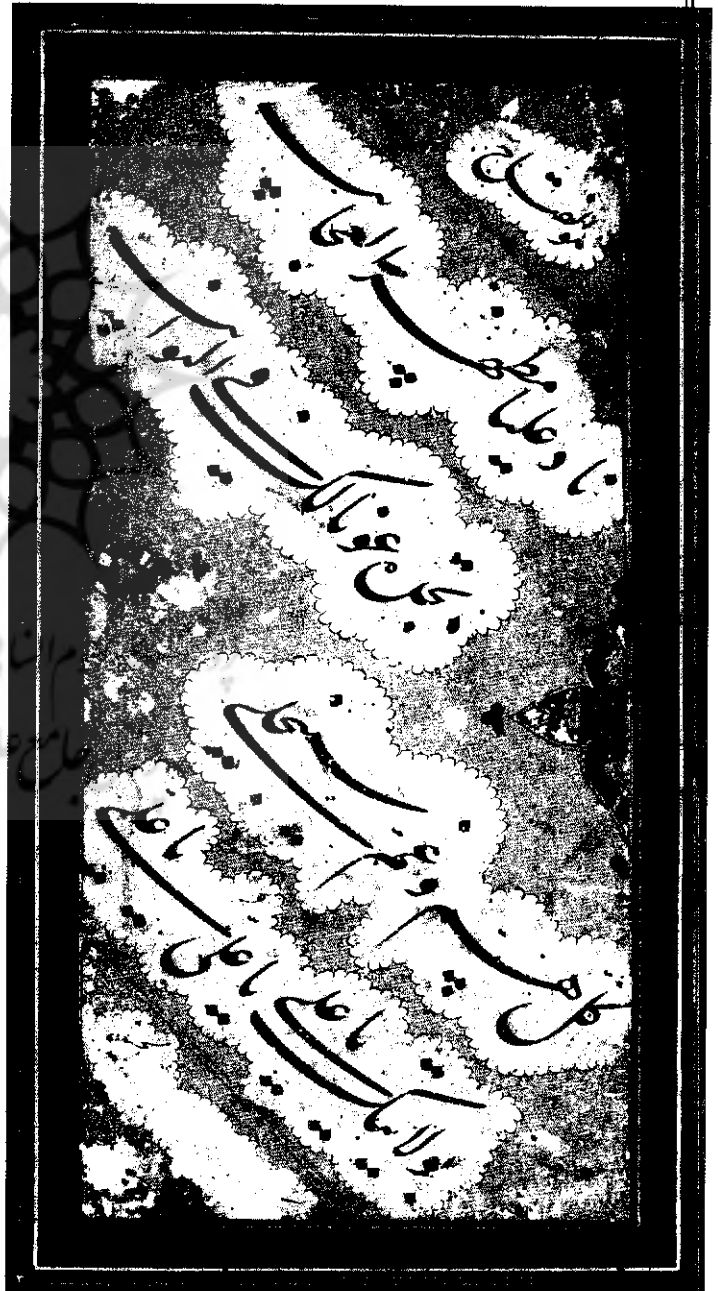 هو الفتاح
ناد علیا مظهر العجائب
تجده عونا لک فی النوائب
کل هم و غم سینجلی
بولایتک یا علی یا علی یا علی